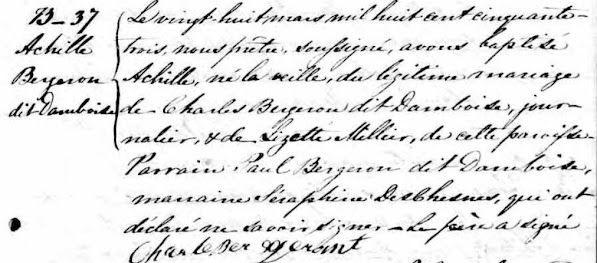 B_37
Achille
Bergeron
dit Damboise
Le vingt-huit mars mil huit cent cinquante-
trois, nous prêtre, soussigné, avons baptisé
Achille, né la veille, du légitime mariage
de Charles Bergeron dit Damboise, jour-
nalier, & de Lizette Millier, de cette paroisse
Parrain Paul Bergeron dit Damboise,
marraine Séraphine DesChesnes, qui ont
déclaré ne savoir signer - Le père a signé
Charle Ber gerant